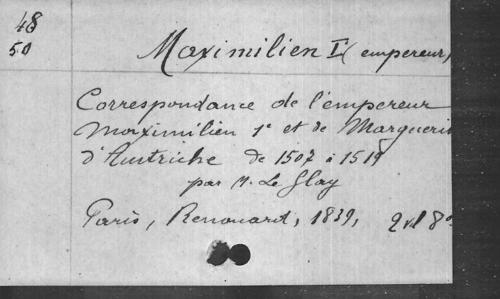 48
50
Maximilien Iᵉʳ (empereur)
Correspondance de l'empereur
Maximilien 1ᵉ et de Marguerit
d'Autriche de 1507 à 1519
par M. Le Glay
Paris, Renouard, 1839, 2 vol 8°